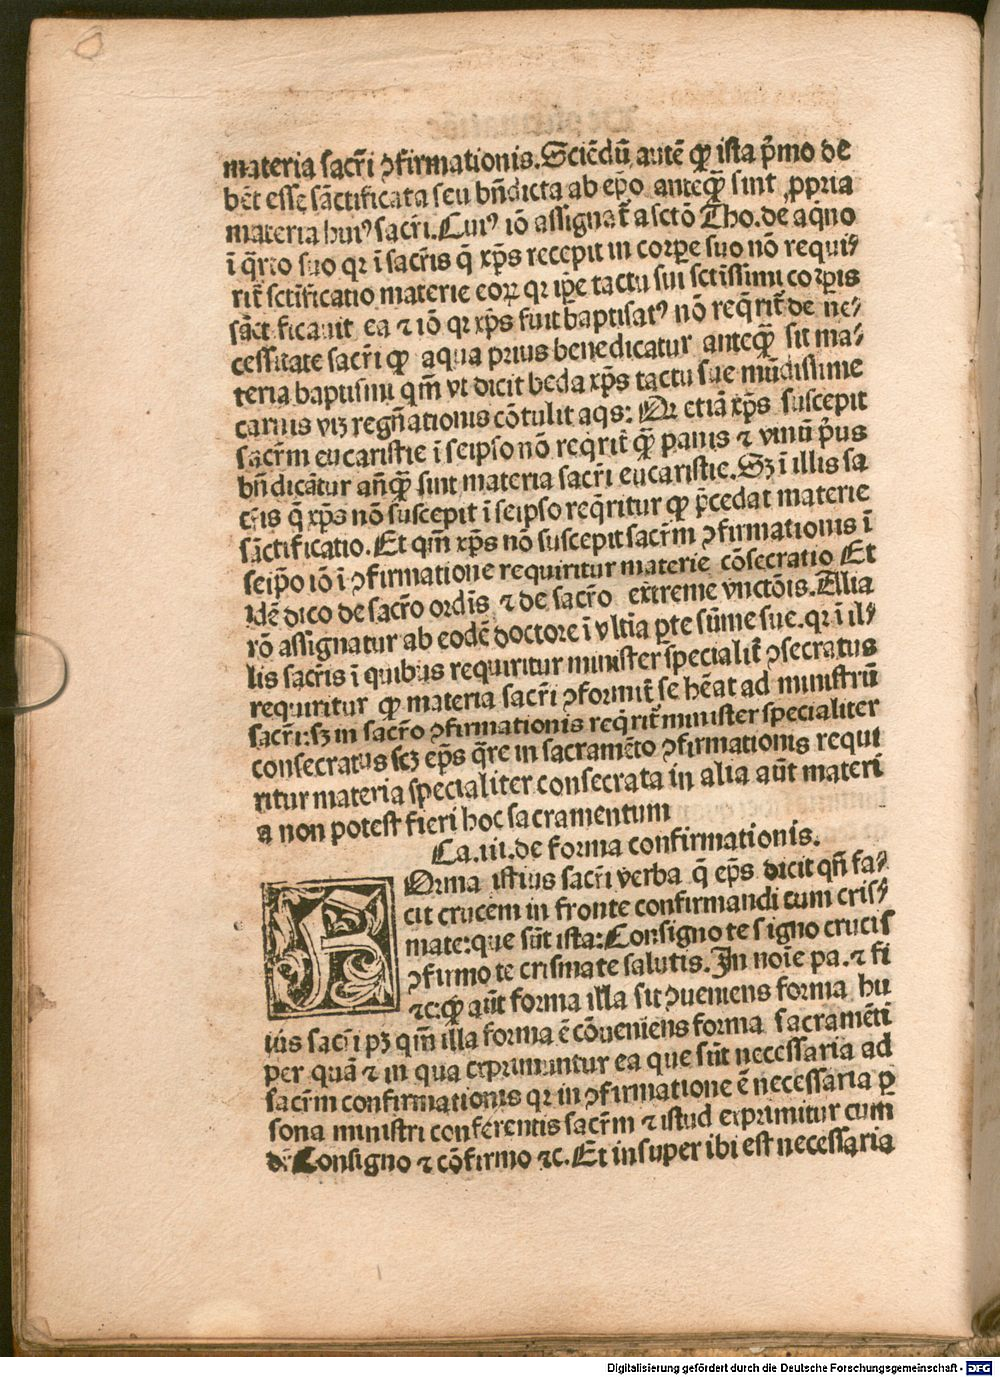 materia sacr̄i ↄfirmationis. Sciēdū autē ꝙ ista p̄mo de
bēt esse sāctificata seu bn̄dicta ab ep̄o anteꝙ̄ sint ꝓpria
materia huiꝰ sacr̄i. Cuiꝰ iō assignat̄ a sctō Tho. de aq̄no
ī q̄rto suo qr ī sacr̄is q̄ xp̄s recepit in corꝑe suo nō requi⸗
rit̄ sctīficatio materie eoꝝ qr ip̄e tactu sui sctīssimi corꝑis
sāct ficauit ea ⁊ iō qr xp̄s fuit baptisatꝰ nō req̄rit̄ de ne⸗
cessitate sacr̄i ꝙ aqua prius benedicatur anteꝙ̄ sit ma⸗
teria baptisini qm̄ vt dicit beda xp̄s tactu sue mūdissime
carnis viꝫ regn̄ationis cōtulit aqs: Qr etiā xp̄s suscepit
sacr̄m eucaristie ī seipso nō req̄rit̄ ꝙ̄ panis ⁊ vinū p̄us
bn̄dicātur an̄ꝙ̄ sint materia sacr̄i eucaristie. Sꝫ ī illis sa
cr̄is q̄ xp̄s nō suscepit ī seipso req̄ritur ꝙ p̄cedat materie
sāctificatio. Et qm̄ xp̄s nō suscepit sacr̄m ↄfirmationis ī
seip̄o iō ī ↄfirmatione requiritur materie cōsecratio Et
Idē dico de sacr̄o ordīs ⁊ de sacr̄o extreme vnctōis. Alia
rō assignatur ab eodē doctore ī vltīa ꝑte sūme sue. qr ī il⸗
lis sacr̄is ī quibus requiritur minister specialit̄ ↄsecratus
requiritur ꝙ materia sacr̄i ↄformit̄ se hēat ad ministrū
sacr̄i: sꝫ in sacr̄o ↄfirmationis req̄rit̄ minister specialiter
consecratus scꝫ ep̄s q̄re in sacramēto ↄfirmationis requi
ritur materia specialiter consecrata in alia aūt materi
a non potest fieri hoc sacramentum
Ca. iii. de forma confirmationis.
FOrma istius sacr̄i verba q̄ ep̄s dicit qn̄ fa⸗
cit crucem in fronte confirmandi cum cris⸗
mate: que sūt ista: Consigno te signo crucis
ↄfirmo te crismate salutis. In noīe pa. ⁊ fi
⁊c: ꝙ aūt forma illa sit ↄueniens forma hu
ius sacr̄i pꝫ qm̄ illa forma ē cōueniens forma sacramēti
per quā ⁊ in qua exprimuntur ea que sūt necessaria ad
sacr̄m confirmationis qr in ↄfirmatione ē necessaria ꝑ
sona ministri conferentis sacr̄m ⁊ istud exprimitur cum
dr̄ Consigno ⁊ cōfirmo ⁊c. Et insuper ibi est necessaria
Digitalisierung gefördert durch die Deutsche Forschungsgemeinschaft - DFG